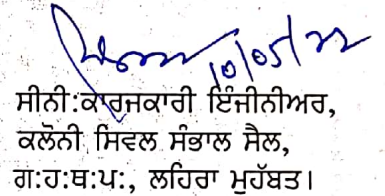 10/05/22
ਸੀਨੀ:ਕਾਰਜਕਾਰੀ ਇੰਜੀਨੀਅਰ,
ਕਲੋਨੀ ਸਿਵਲ ਸੰਭਾਲ ਸੈਲ,
ਗ:ਹ:ਥ:ਪ:, ਲਹਿਰਾ ਮੁਹੱਬਤ।